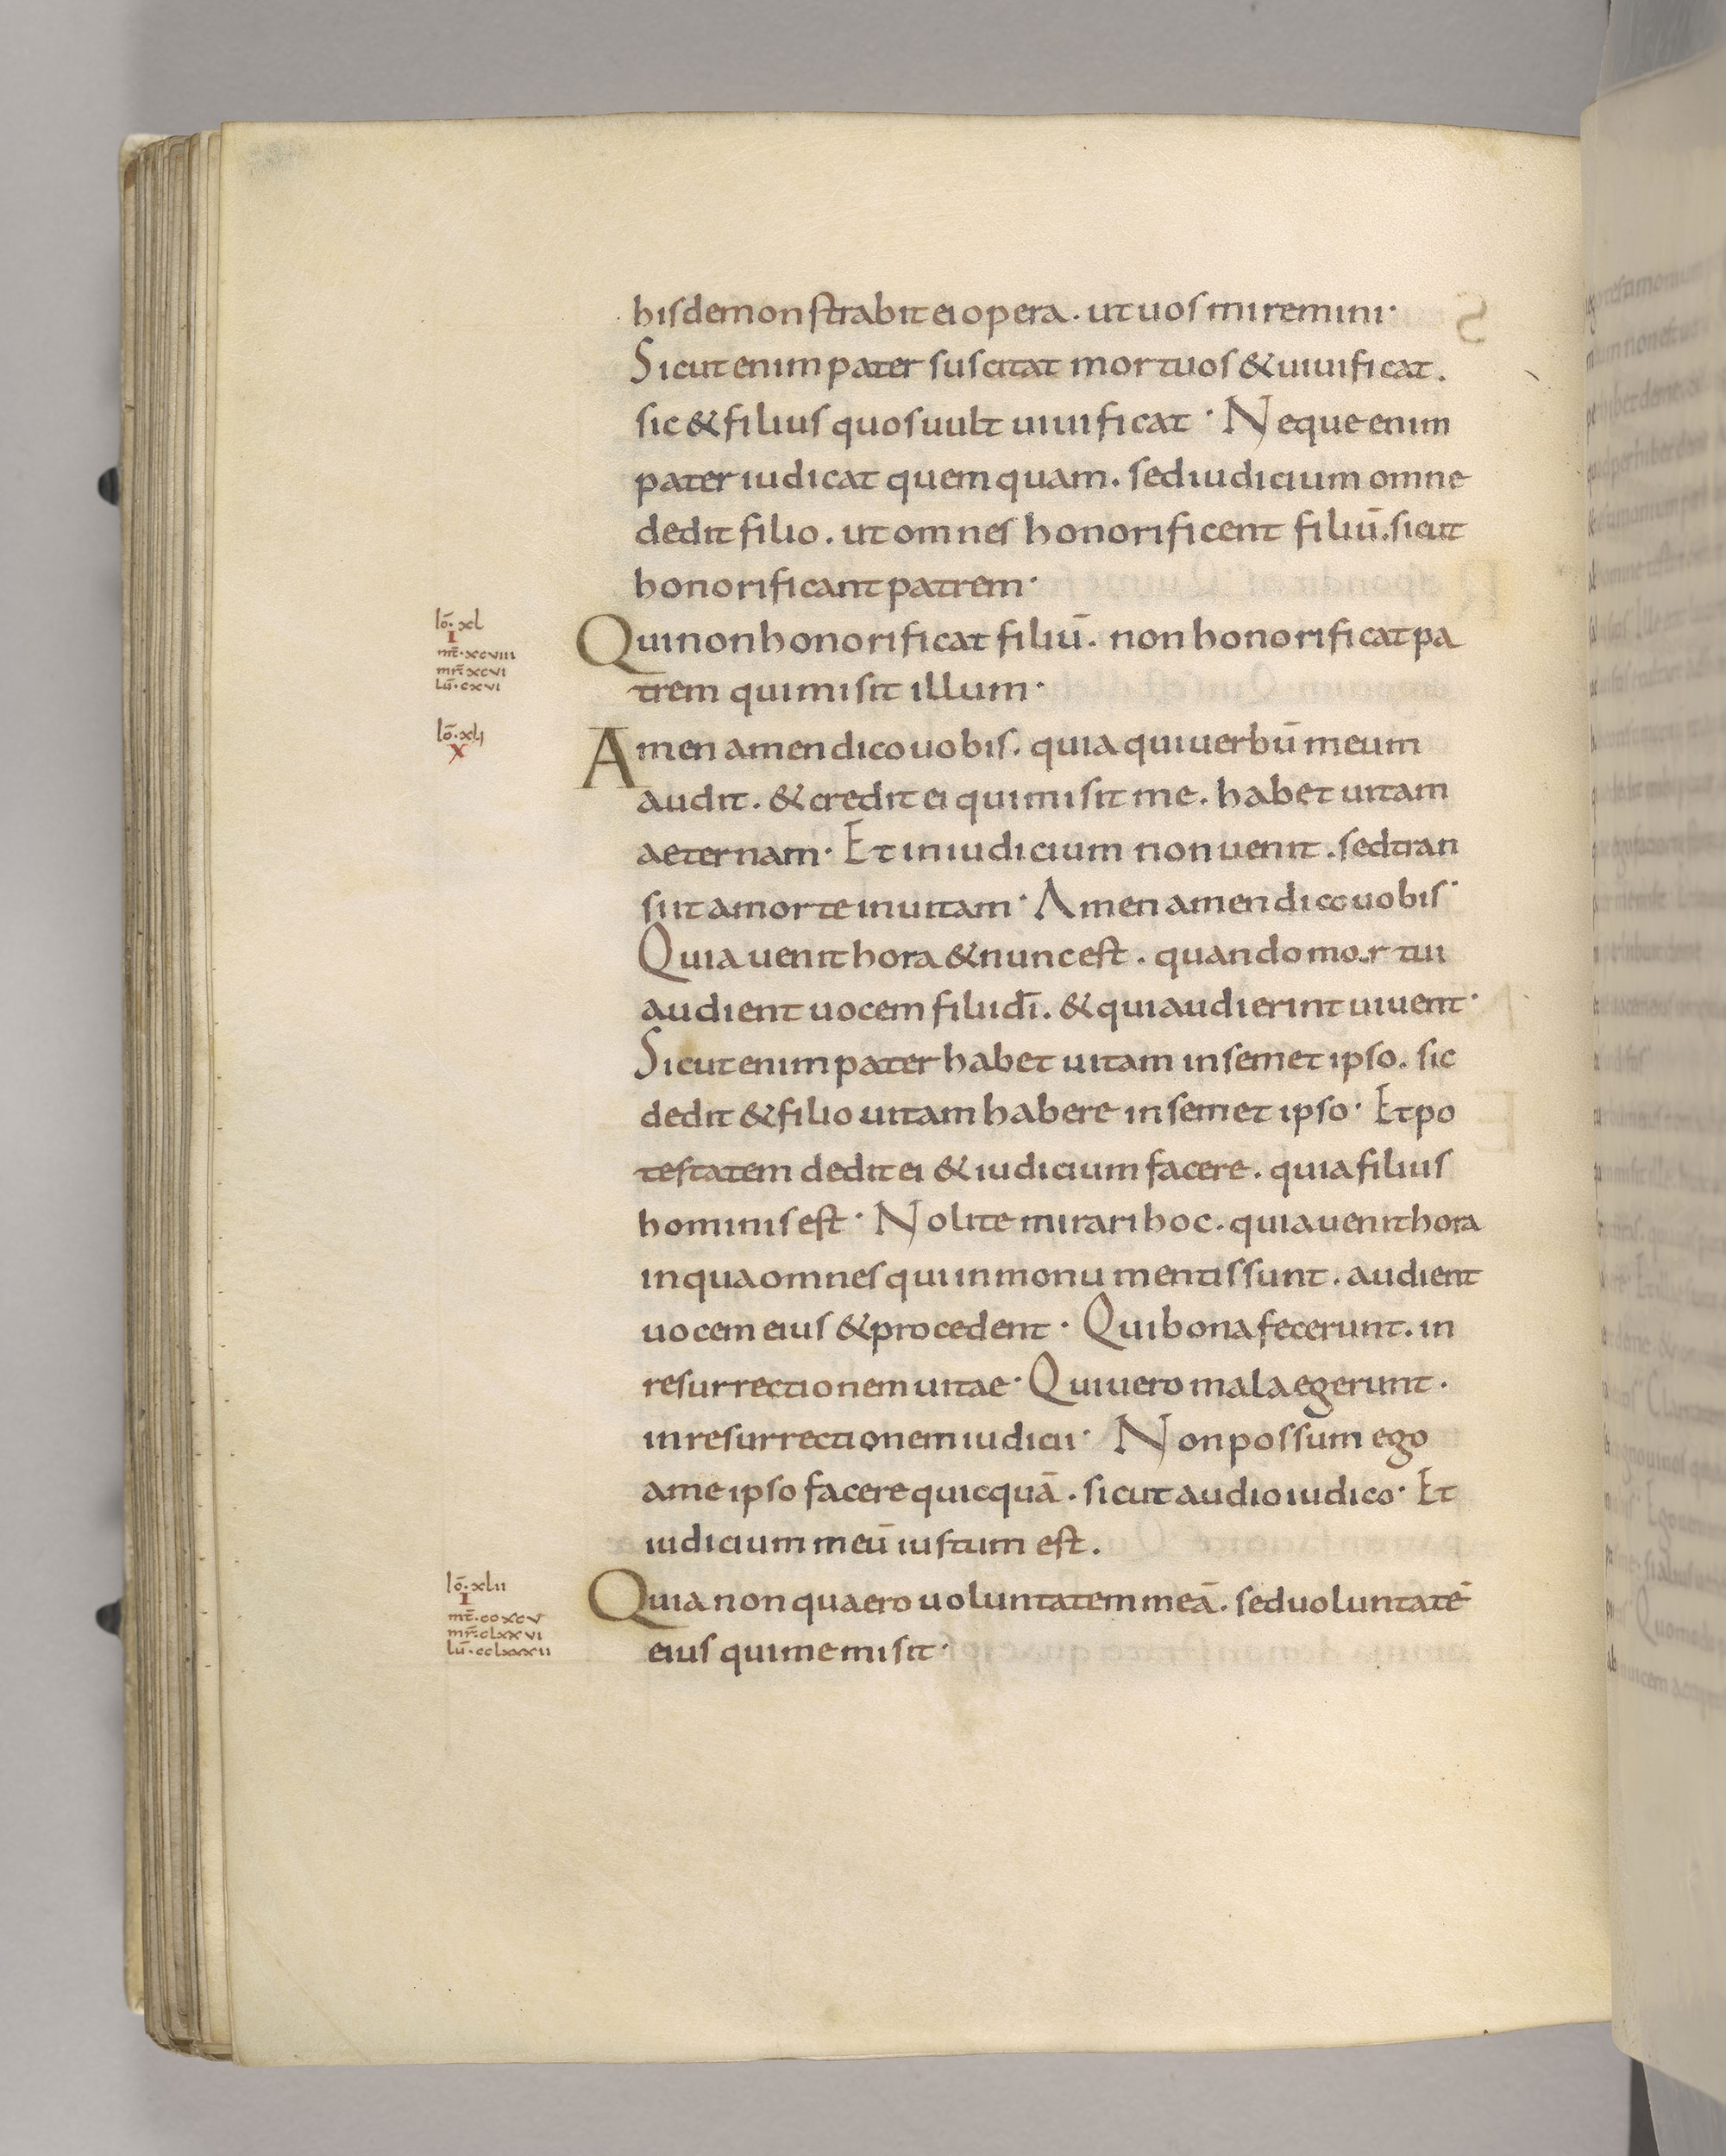 his demonstrabit ei opera. ut uos miremini·
Sicut enim pater suscitat mortuos & uiuificat.
sic & filius quos uult uiuificat· Neque enim
pater iudicat quemquam. sed iudicium omne
dedit filio. ut omnes honorificent filiū. sicut
honorificant patrem·
Iō·xL
I
mt̄·xcviii
mr̄ xcvi
Lū·cxvi
Qui non honorificat filiū. non honorificat pa
trem qui misit illum·
Iō·xLi
X
Amen amen dico uobis. quia qui uerbū meum
audit. & credit ei qui misit me. habet uitam
aeternam· Et in iudicium non uenit. sed tran
siit a morte in uitam· Amen amen dico uobis·
Quia uenit hora & nunc est. quando mortui
audient uocem filii dī. & qui audierint uiuent·
Sicut enim pater habet uitam in semet ipso. sic
dedit & filio uitam habere in semet ipso· Et po
testatem dedit ei & iudicium facere. quia filius
hominis est· Nolite mirari hoc. quia uenit hora
in qua omnes qui in monumentis sunt. audient
uocem eius & procedent· Qui bona fecerunt. in
resurrectionem uitae· Qui uero mala egerunt.
in resurrectionem iudicii· Non possum ego
a me ipso facere quicquā. sicut audio iudico· Et
iudicium meū iustum est.
Iō·xLii
I
mt̄·ccxcv
mr̄·cLxxvi
Lū·ccLxxxii
Quia non quaero uoluntatem meā. sed uoluntatē
eius qui me misit·